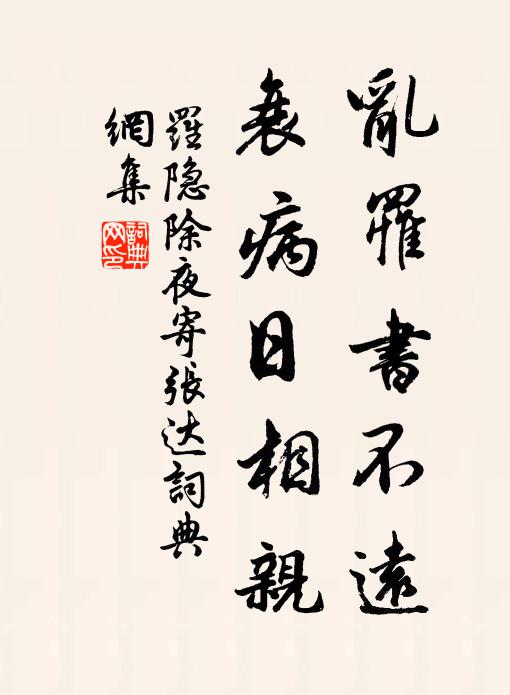 亂罹書不遠
衰病日相親
羅隐除夜寄張达詞典
網集
詞典網印